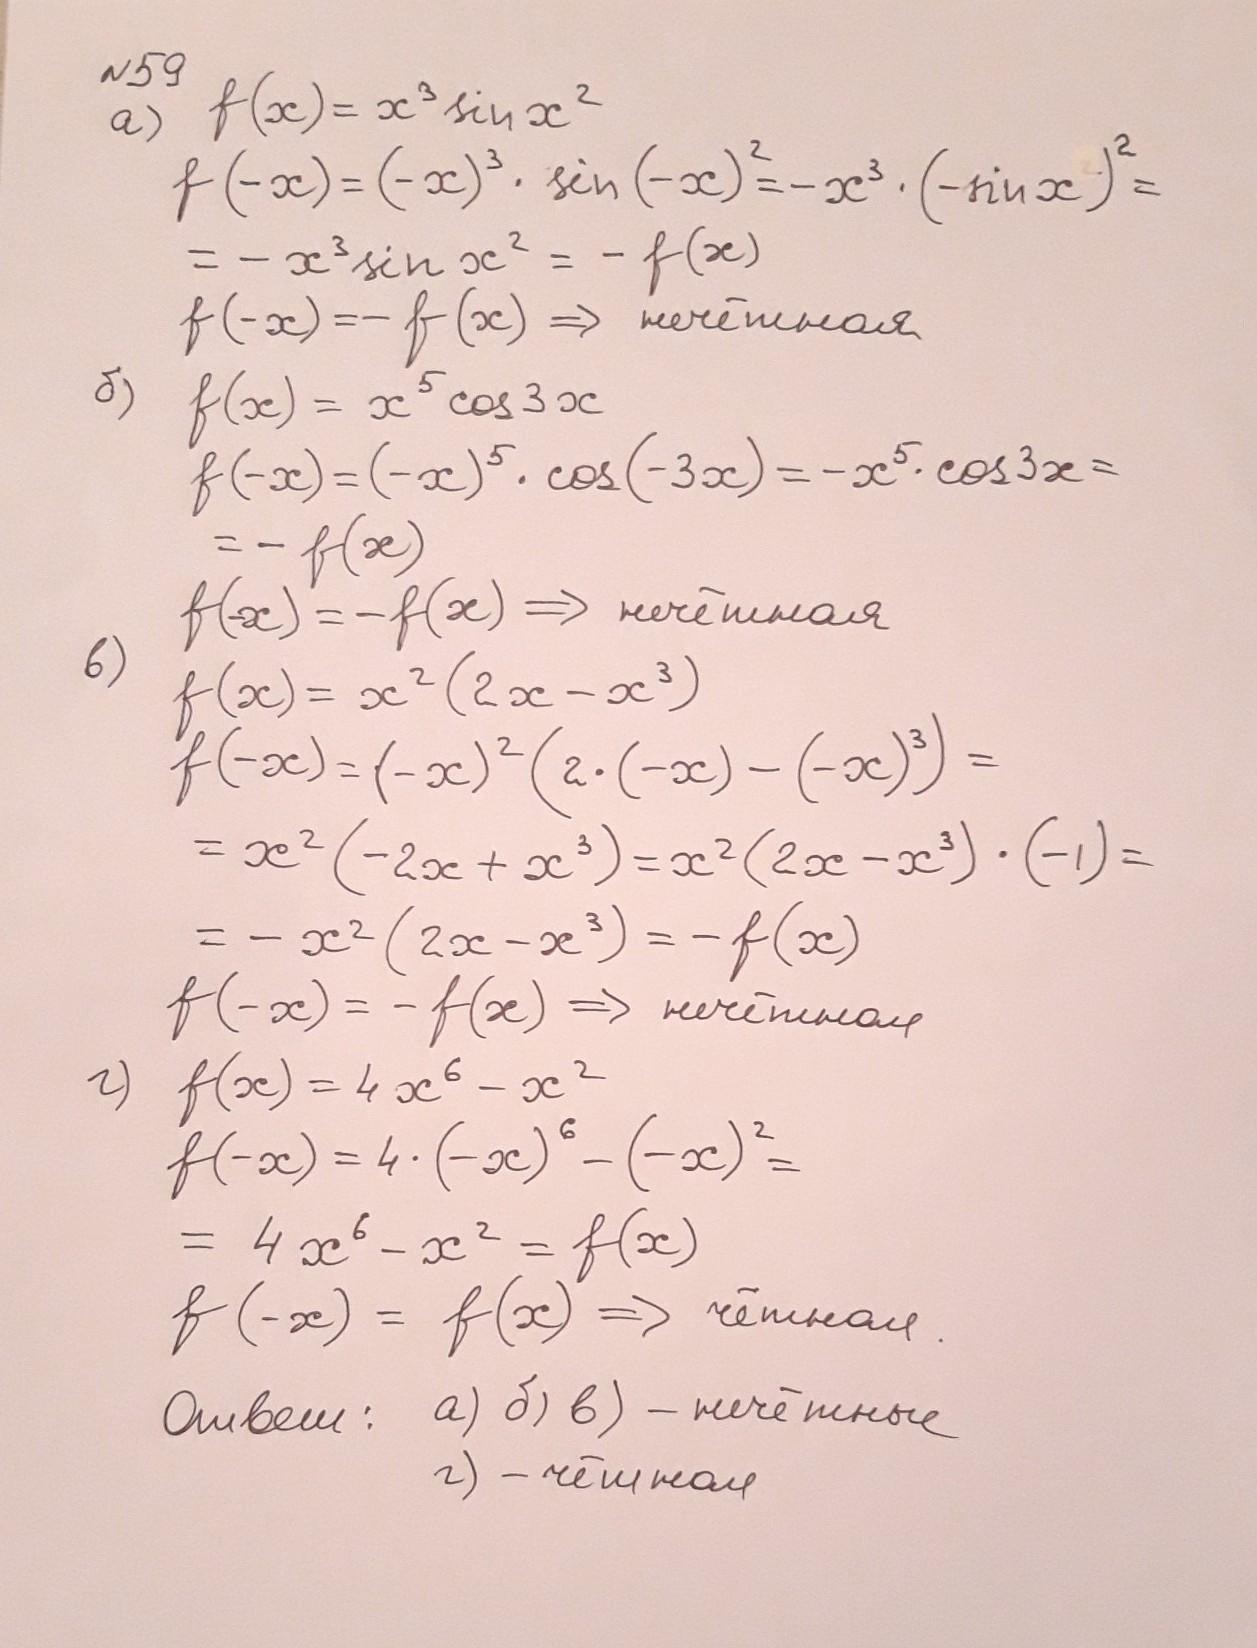 №59
а) f(x) = x³ sin x²
f(-x) = (-x)³ · sin(-x)² = -x³ · (-sin x)² =
= - x³ sin x² = - f(x)
f(-x) = - f(x) ⇒ нечётная
б) f(x) = x⁵ cos 3x
f(-x) = (-x)⁵ · cos(-3x) = -x⁵ · cos 3x =
= - f(x)
f(-x) = -f(x) ⇒ нечётная
в) f(x) = x² (2x - x³)
f(-x) = (-x)² (2·(-x) - (-x)³) =
= x² (-2x + x³) = x² (2x - x³) · (-1) =
= - x² (2x - x³) = - f(x)
f(-x) = - f(x) ⇒ нечётная
г) f(x) = 4x⁶ - x²
f(-x) = 4·(-x)⁶ - (-x)² =
= 4x⁶ - x² = f(x)
f(-x) = f(x) ⇒ чётная.
Ответ: а) б) в) - нечётные
г) - чётная